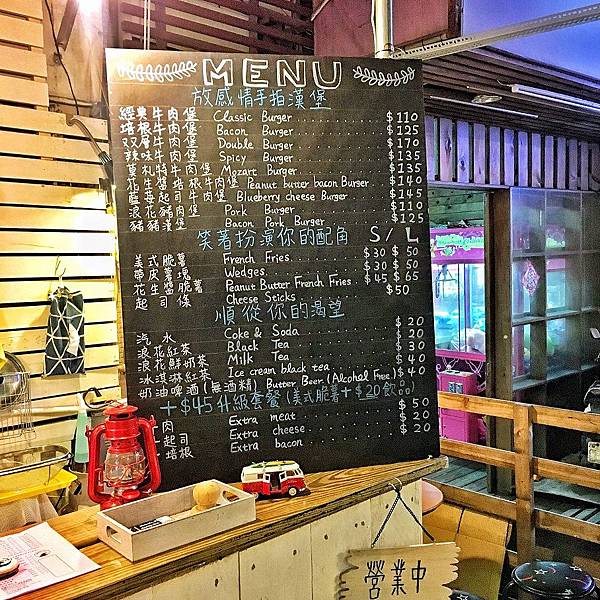 MENU
放感情手拍漢堡
經典牛肉堡 Classic Burger $110
培根牛肉堡 Bacon Burger $125
双層牛肉堡 Double Burger $170
辣味牛肉堡 Spicy Burger $135
莫札特牛肉堡 Mozart Burger $135
花生醬培根牛肉堡 Peanut butter bacon Burger $140
藍莓起司牛肉堡 Blueberry cheese Burger $145
浪花豬肉堡 Pork Burger $110
豬豬漢堡 Bacon Pork Burger $125
笑著扮演你的配角 S / L
美式脆薯 French Fries $30 $50
帶皮薯塊 Wedges $30 $50
花生醬脆薯 Peanut Butter French Fries $45 $65
起司條 Cheese Sticks $50
順從你的渴望
汽水 Coke & Soda $20
浪花紅茶 Black Tea $20
浪花鮮奶茶 Milk Tea $40
冰淇淋紅茶 Ice cream black tea $30
奶油啤酒(無酒精) Butter Beer (Alcohol Free) $40
+$45升級套餐(美式脆薯+$20飲品)
肉 Extra meat $50
起司 Extra cheese $20
培根 Extra bacon $20
營業中